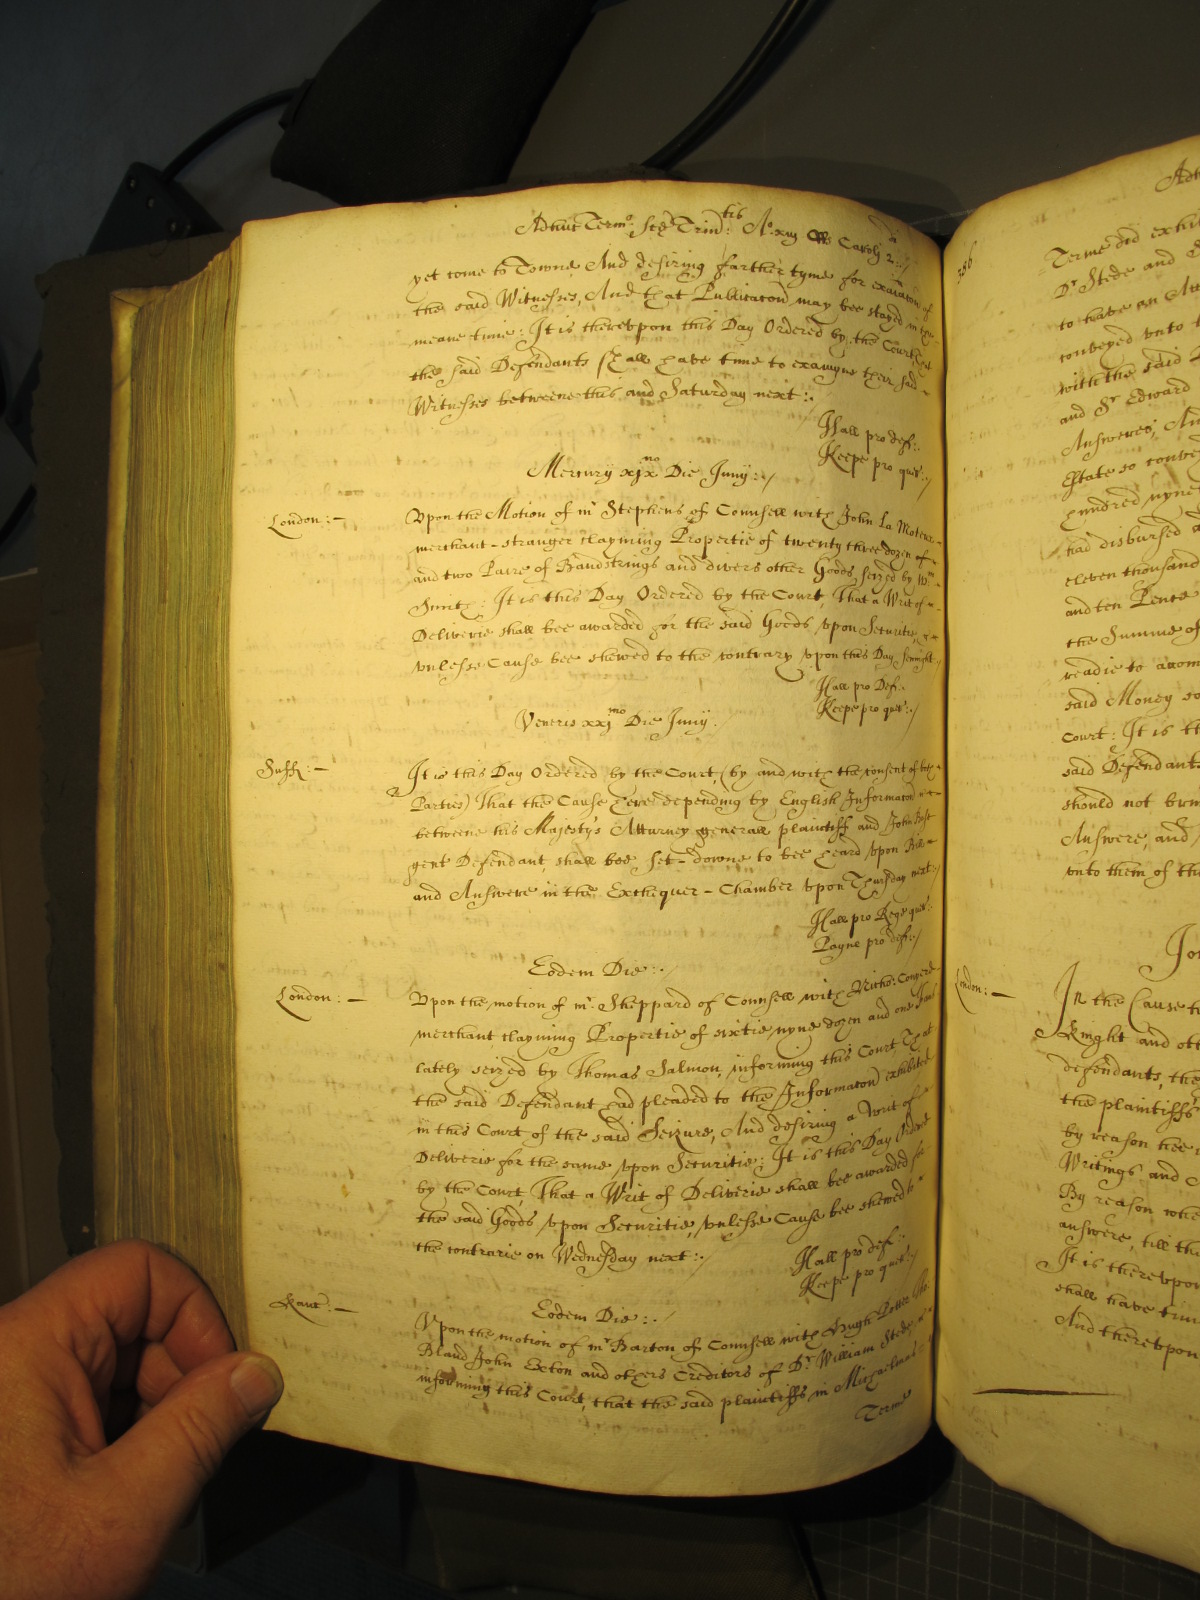 Adhuc Termo: Scē Trin:tis Ao. xiij Caroli 2:/
yet come to Towne And desiring farther tyme for exaīacon of
the said Witnesses, And that Publicacon may bee stayed in the
meane time: It is therevpon this Day Ordered by the Court, that
the said Defendants shall have time to examyne their said
Witnesses betweene this and Saturday next:.
Hall pro def:.
Keepe pro quer:./
Mercurij xixno Die Junij:./
London:—
Vpon the Motion of mr Stephens of Counsell with John La Motte
merchant-stranger clayming Propertie of twenty three dozen of
and two Paire of Bandstrings and divers other Goods seized by Wm
Smith: It is this Day Ordered by the Court, That a Writ of
Deliverie shall bee awarded for the said Goods vpon Securitie
vnlesse Cause bee shewed to the contrary vpon this Day sennight
Hall pro Def:.
Keepe pro quer:./
Veneris xximo Die Junij.
Suff:—
It is this Day Ordered by the Court, (by and with the consent of both
Parties) That the Cause here depending by English Informacon
betweene his Majesty's Attorney generall plaintiff and John
gent Defendant, shall bee set-downe to bee heard vpon Bill
and Answere in the Exchequer-Chamber vpon Thursday next:
Hall pro Rege quer:.
Payne pro def:./
Eodem Die:./
London:—
Vpon the motion of mr. Sheppard of Counsell with Nicho:
merchant clayming Propertie of sixtie nyne dozen and one
lately seized by Thomas Salmon, informing this Court That
the said Defendant had pleaded to the Informacon exhibited
in this Court of the said Seizure, And desiring a Writ of
Deliverie for the same vpon Securitie: It is this Day Ordered
by the Court, That a Writ of Deliverie shall bee awarded for
the said Goods vpon Securitie, vnlesse Cause bee shewed to
the contrarie on Wednesday next:./
Hall pro def:.
Keepe pro quer:./
Eodem Die:./
Kanc:—
Vpon the motion of mr Barton of Counsell with Hugh Potter
Bland John Eeton and others Creditors of Dr. William Stede,
informing this Court, that the said plaintiffs in Michaelmas
Terme
386
Terme did exhi
Dr Stede and
to have an
conveyed vnto
with the said
and Sr Edward
Answeres, An
Estate so conve
hundred nyne
had disbursed
eleven thousand
and ten Pence
the Summe of
readie to
said Money so
Court: It is th
said Defendants
should not
Answere, and
vnto them of th
London:—
In the Cause
Knight and oth
defendants, the
the plaintiffs
by reason hee
Writings and
By reason
answere, till the
It is therevpon
shall have
And therevpon